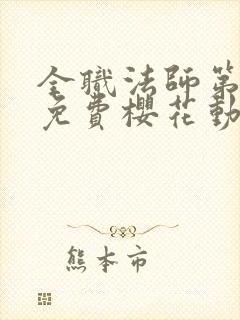 全職法師第
免費櫻花動
熊本市